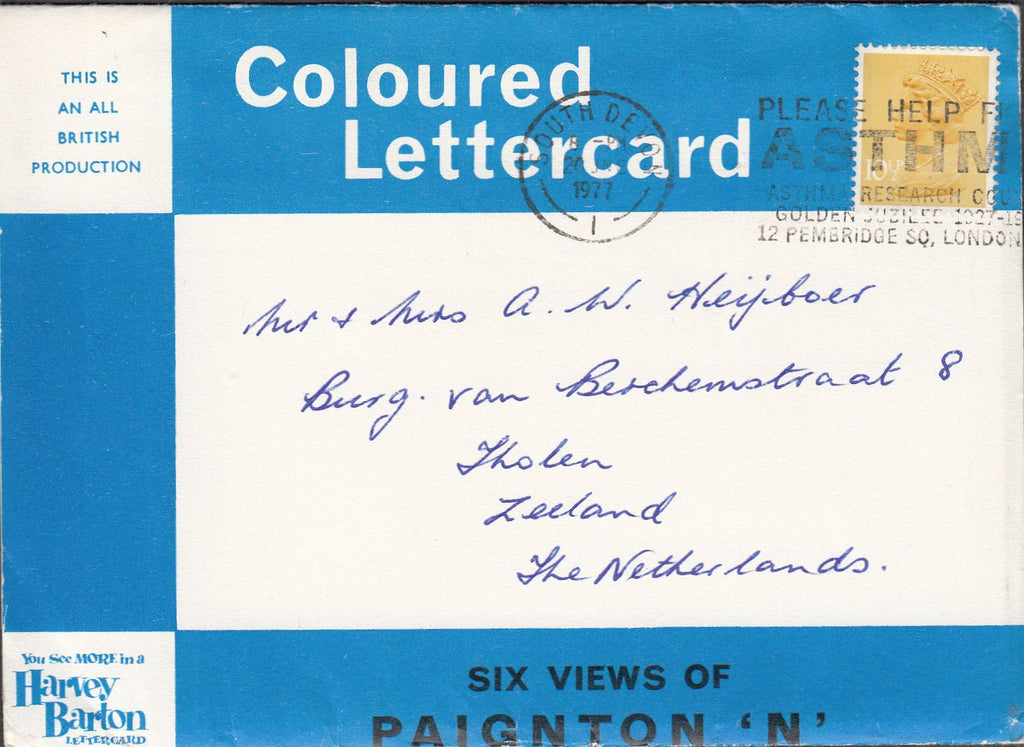 THIS IS
AN ALL
BRITISH
PRODUCTION
Coloured
Lettercard
SOUTH DEVON
1977
1
PLEASE HELP
ASTHM
ASTHMA RESEARCH COU
GOLDEN JUBILEE 1927-19
12 PEMBRIDGE SQ, LONDON
10½P
Mr & Mrs A. W. Heijboer
Burg. van Berchemstraat 8
Tholen
Zeeland
The Netherlands.
You See MORE in a
Harvey
Barton
LETTERCARD
SIX VIEWS OF
PAIGNTON 'N'